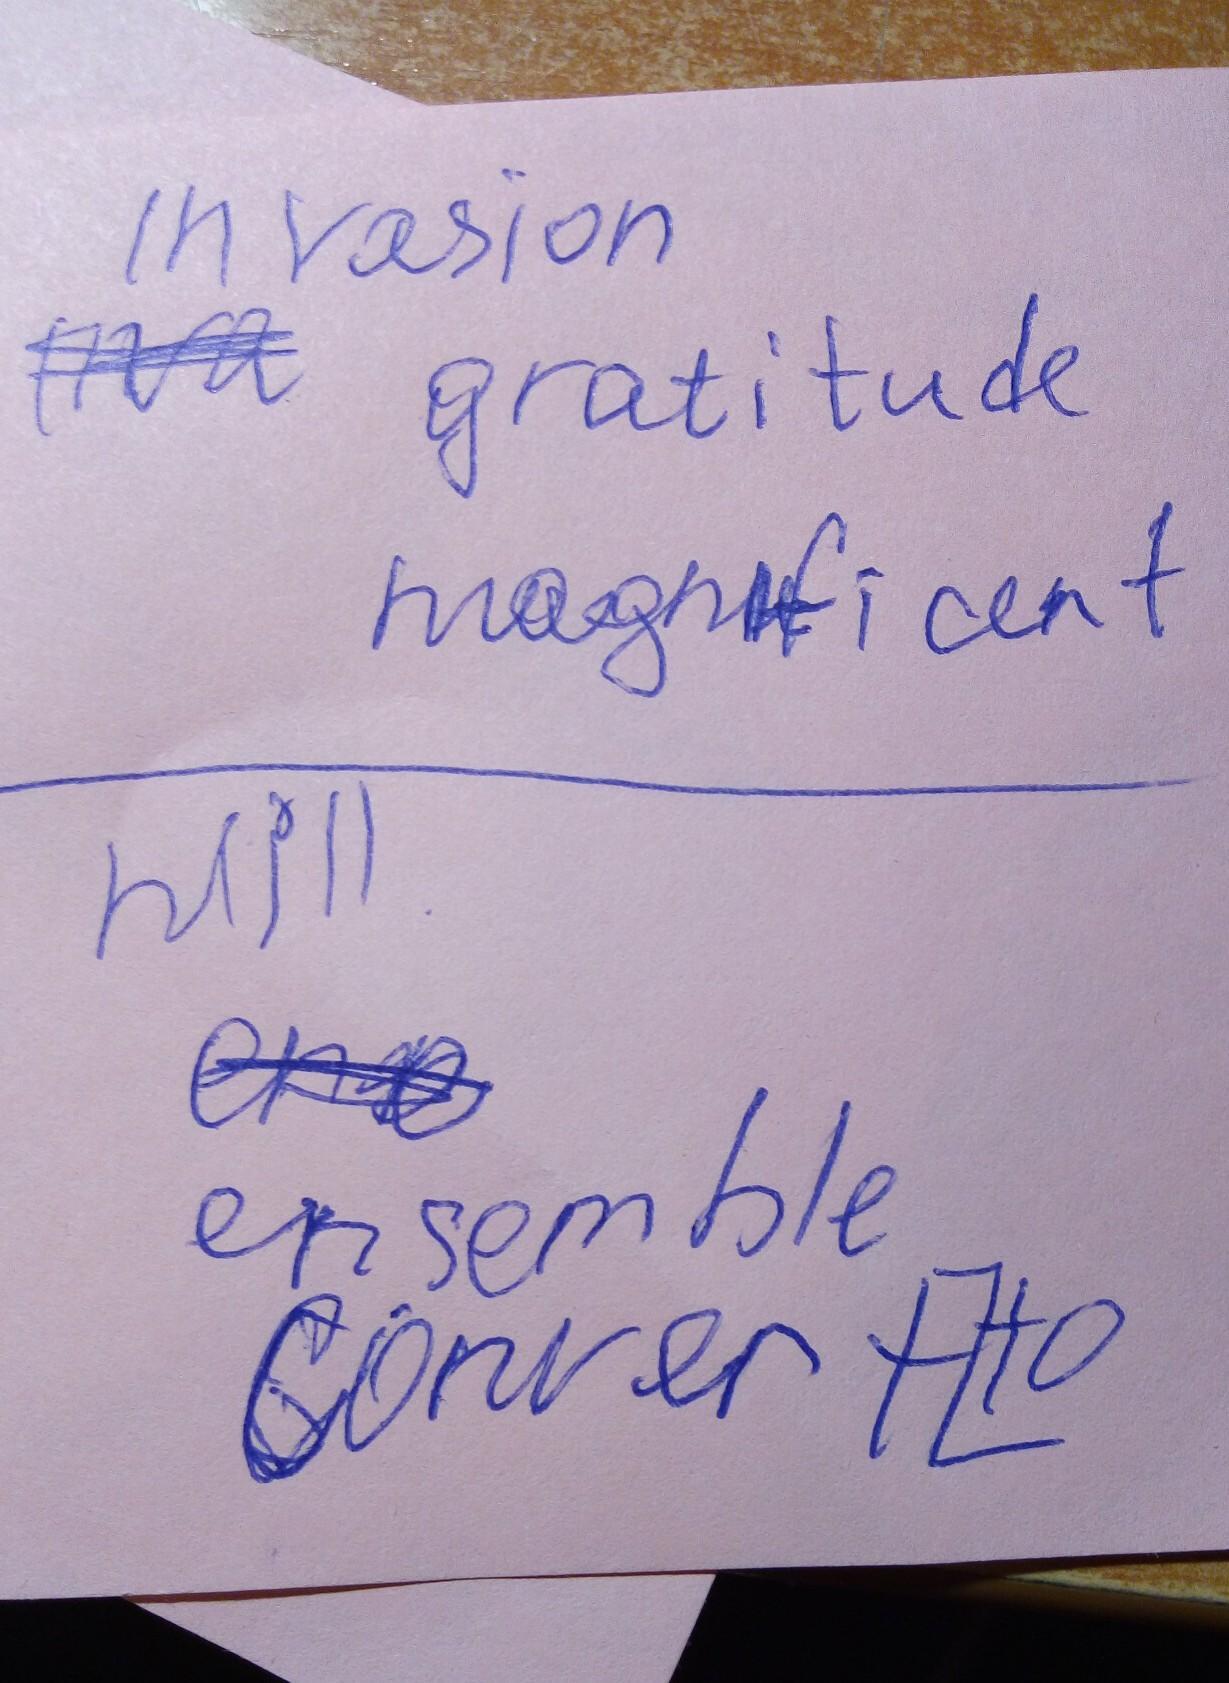 invasion
gratitude
magnificent
ensemble
Convert to